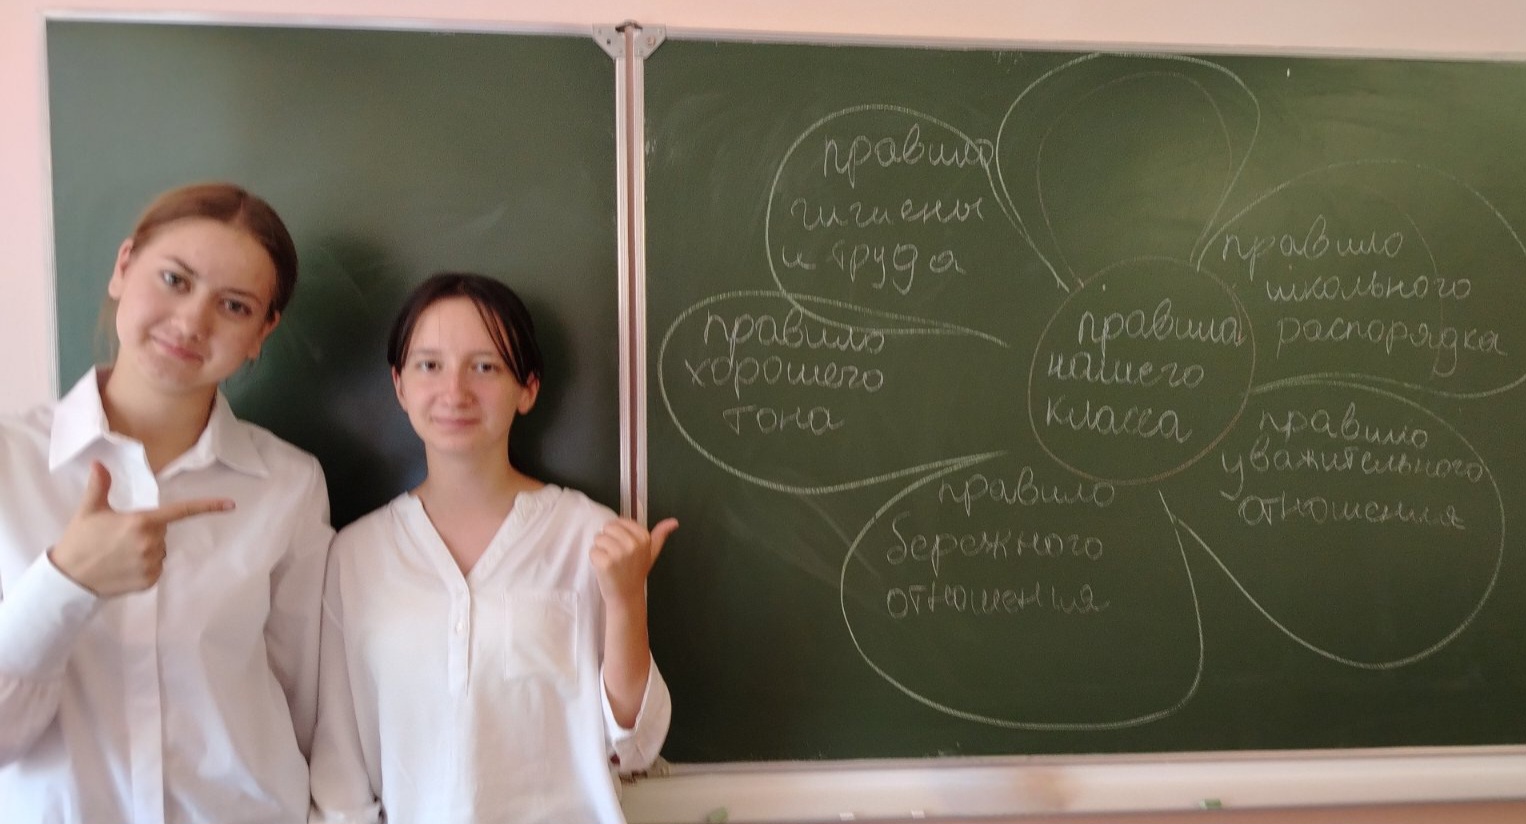 правила
нашего
класса
правило
гигиены
и труда
правило
школьного
распорядка
правило
хорошего
тона
правило
уважительного
отношения
правило
бережного
отношения